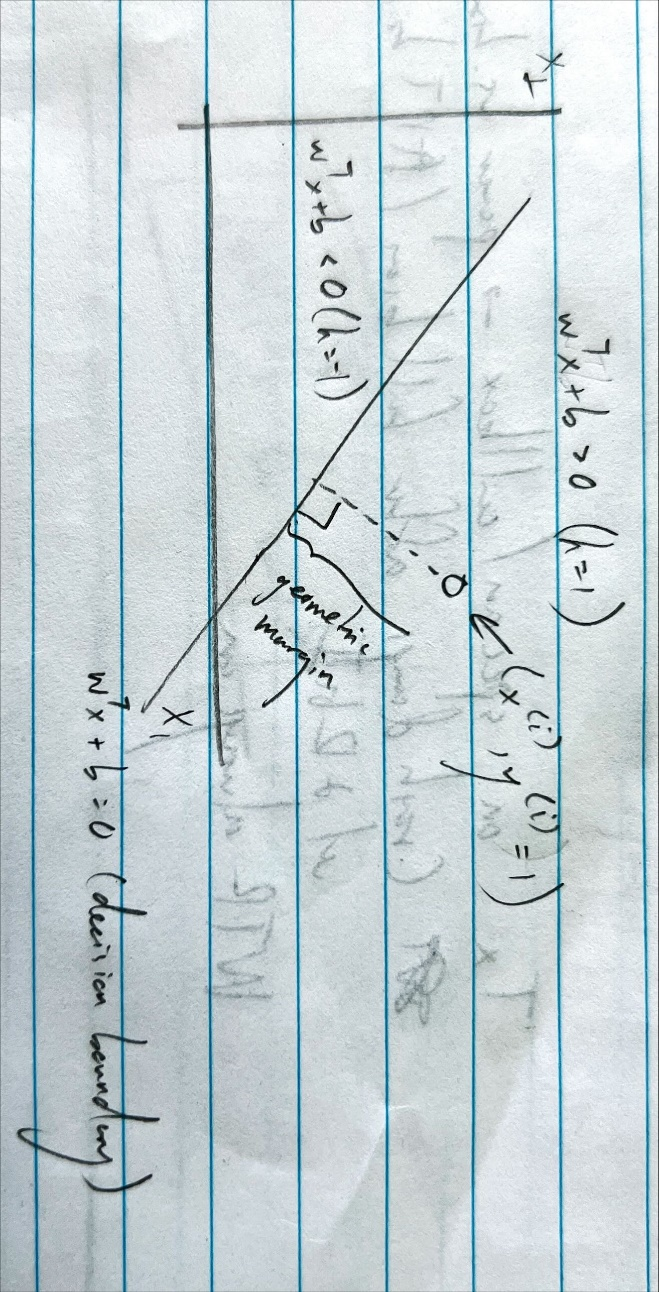 x₂
wᵀx+b > 0 (h=1)
wᵀx+b < 0 (h=-1)
(x⁽ⁱ⁾, y⁽ⁱ⁾=1)
geometric
margin
x₁
wᵀx+b=0. (decision boundary)